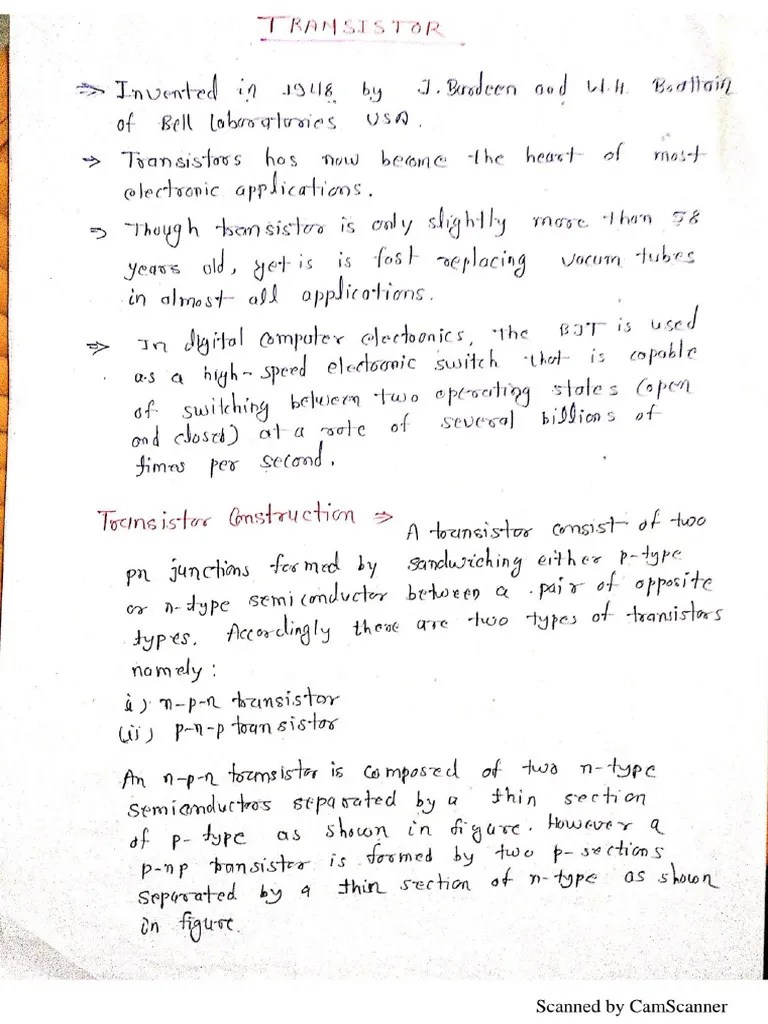 TRANSISTOR
⇒ Invented in 1948 by J. Bardeen and W.H. Brattain
of Bell Laboratories USA.
⇒ Transistors has now become the heart of most
electronic applications.
⇒ Though transistor is only slightly more than 58
years old, yet is is fast replacing vacum tubes
in almost all applications.
⇒ In digital computer electronics, the BJT is used
as a high-speed electronic switch that is capable
of switching between two operating states (open
and closed) at a rate of several billions of
times per second.
Transistor Construction ⇒ A transistor consist of two
pn junctions formed by sandwiching either p-type
or n-type semiconductor between a pair of opposite
types. Accordingly there are two types of transistors
namely:
i) n-p-n transistor
(ii) p-n-p transistor
An n-p-n transistor is composed of two n-type
semiconductors separated by a thin section
of p-type as shown in figure. However a
p-n p transistor is formed by two p-sections
separated by a thin section of n-type as shown
in figure.
Scanned by CamScanner